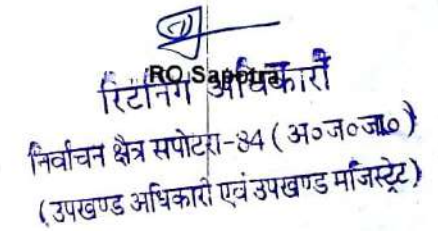 RO Sapotra
रिटर्निंग अधिकारी
निर्वाचन क्षेत्र सपोटरा-84 (अ०ज०जा०)
(उपखण्ड अधिकारी एवं उपखण्ड मजिस्ट्रेट)